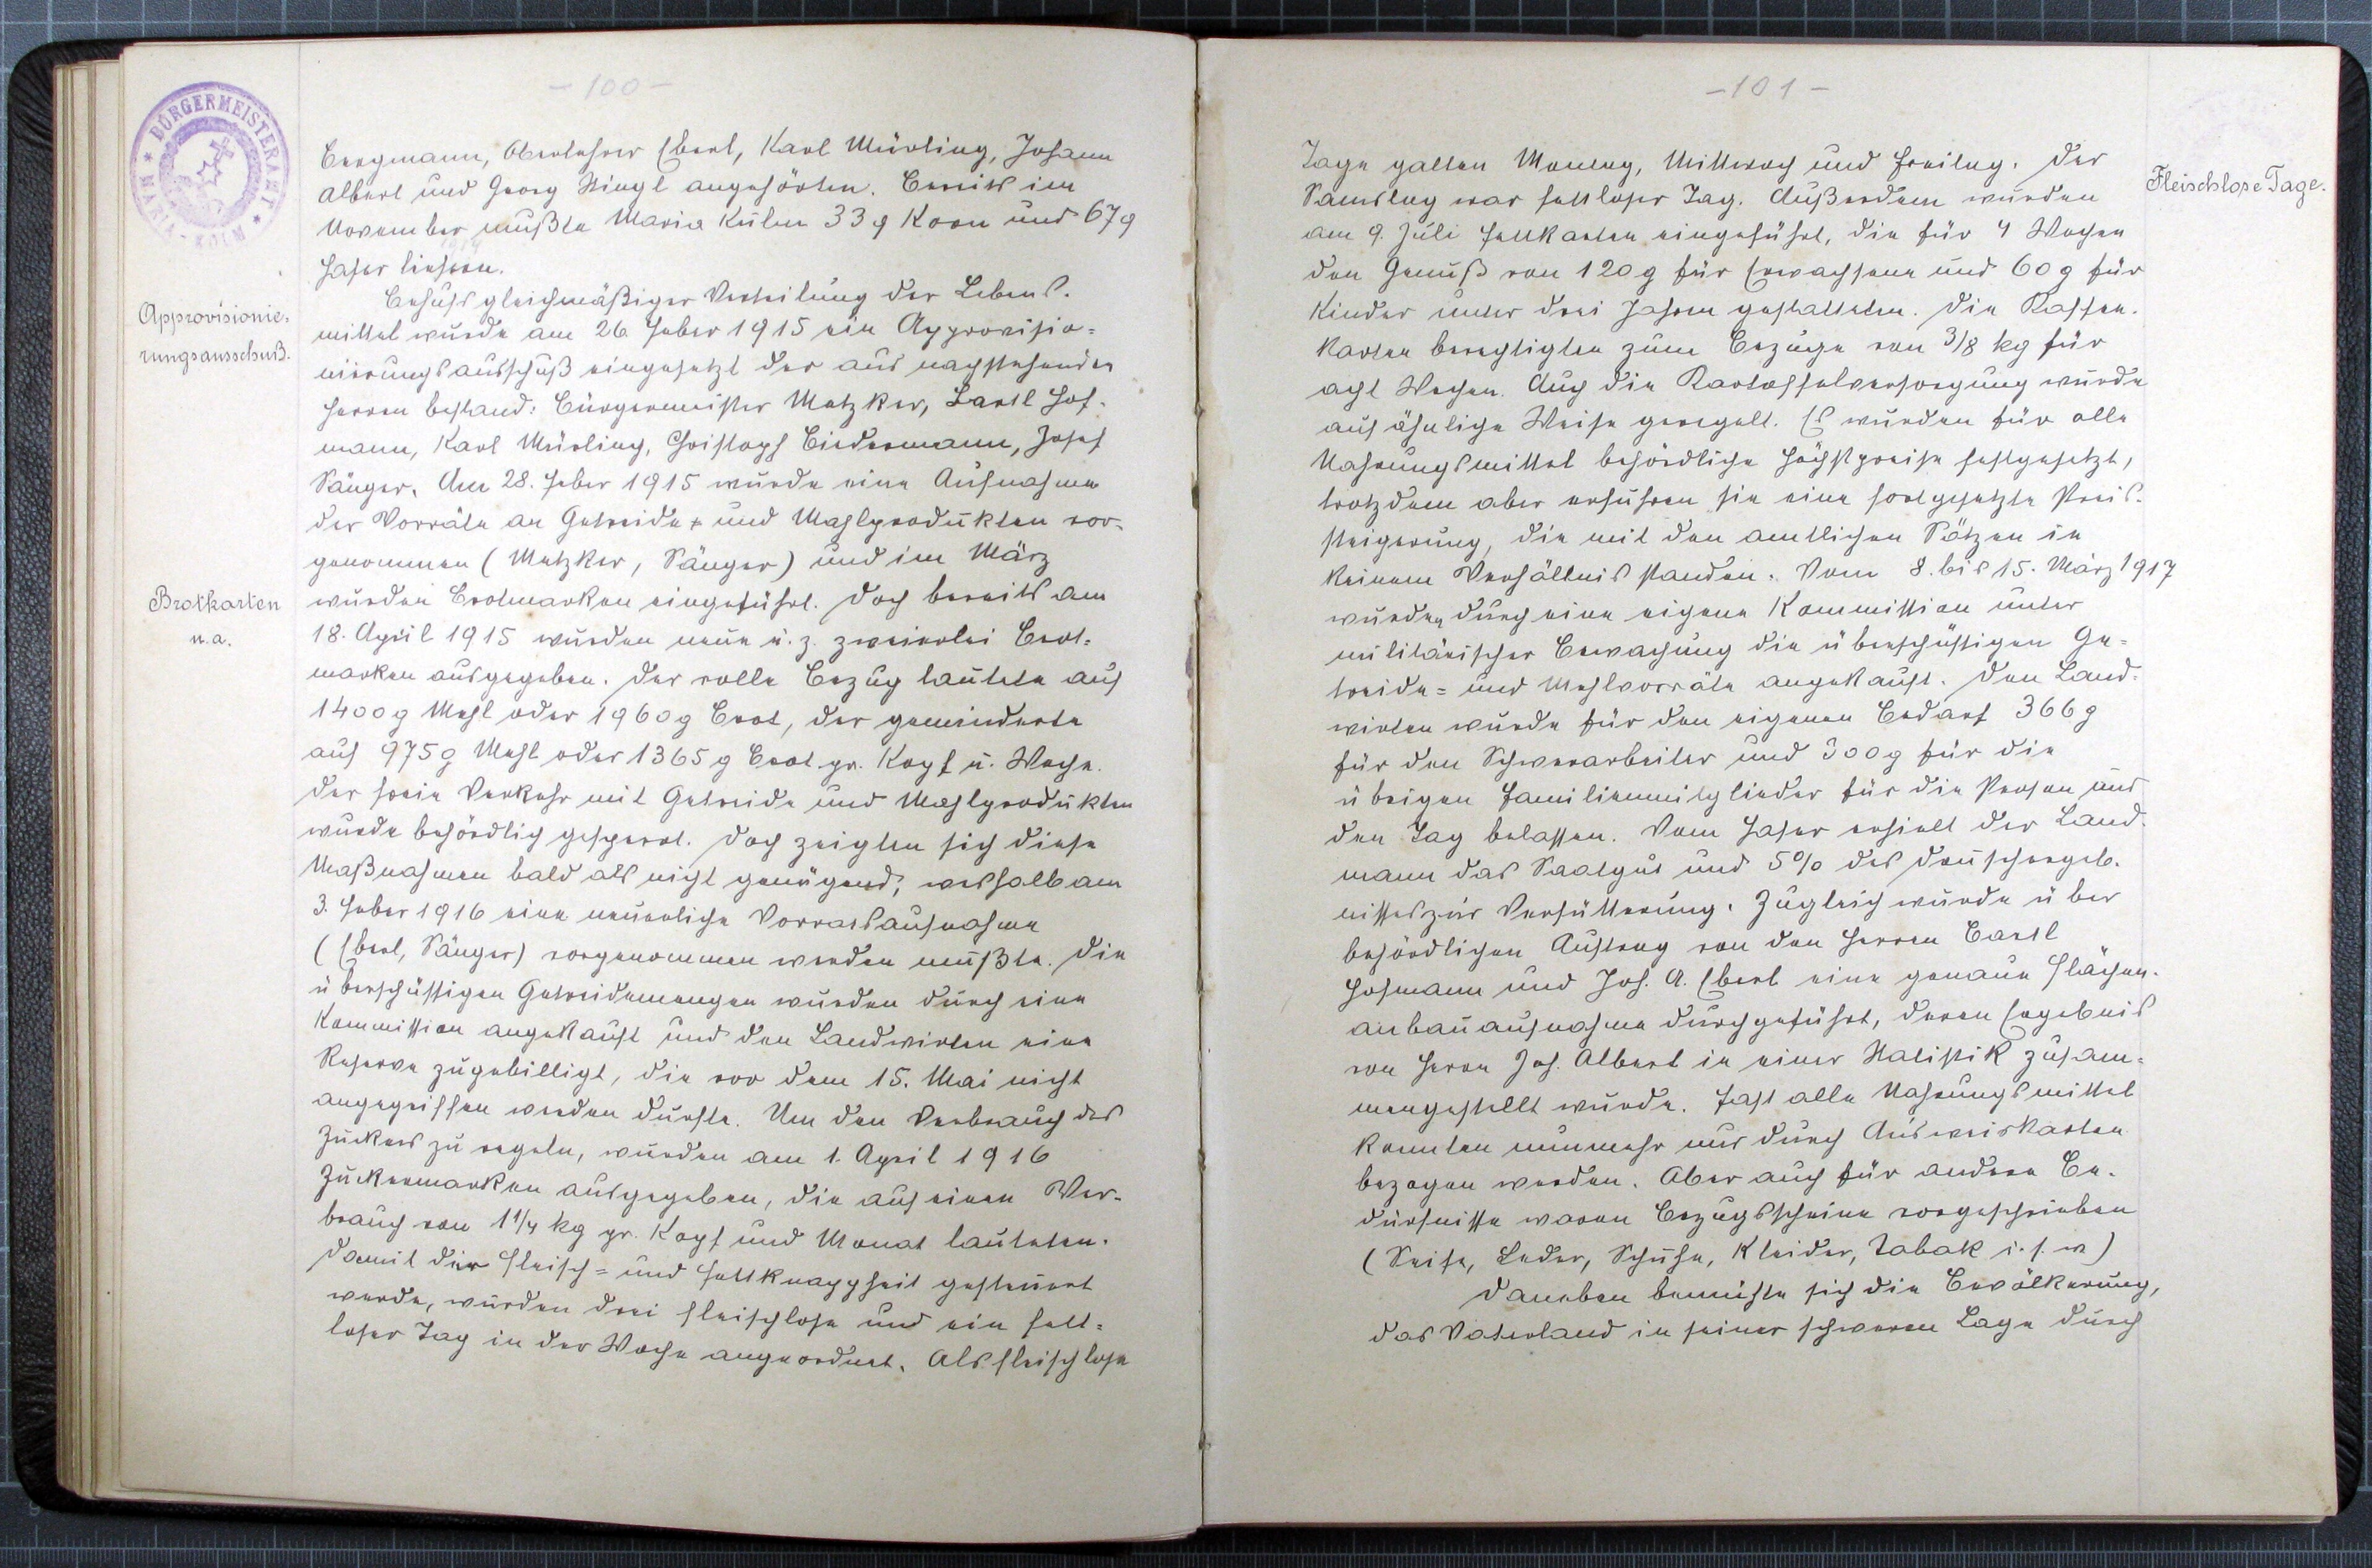 -100-
BÜRGERMEISTERAMT
MARIA-KULM
Bergmann, Oberlehrer Eberl, Karl Mürling, Johann
Albert und Georg Stingl angehörten. Bereits im
November mußte Maria Kulm 33 q Korn und 67 q
Hafer liefern.
Behufs gleichmäßiger Verteilung der Lebens-
Approvisionie-
rungsausschuß.
mittel wurde am 26. Feber 1915 ein Approvisio=
nierungsausschuß eingesetzt der aus nachstehenden
Herren bestand: Bürgermeister Metzker, Bartl Hof-
mann, Karl Mürling, Christoph Biedermann, Josef
Sänger. Am 28. Feber 1915 wurde eine Aufnahme
der Vorräte an Getreide= und Mahlprodukten vor-
genommen (Metzker, Sänger) und im März
Brotkarten
u. a.
wurden Brotmarken eingeführt. Doch bereits am
18. April 1915 wurden neue u. z. zweierlei Brot=
marken ausgegeben. Der volle Bezug lautete auf
1400 g Mehl oder 1960 g Brot, der geminderte
auf 975 g Mehl oder 1365 g Brot pr. Kopf u. Woche.
Der freie Verkehr mit Getreide und Mahlprodukten
wurde behördlich gesperrt. Doch zeigten sich diese
Maßnahmen bald als nicht genügend, weshalb am
3. Feber 1916 eine neuerliche Vorratsaufnahme
(Eberl, Sänger) vorgenommen werden mußte. Die
überschüssigen Getreidemengen wurden durch eine
Kommission angekauft und den Landwirten eine
Reserve zugebilligt, die vor dem 15. Mai nicht
angegriffen werden durfte. Um den Verbrauch des
Zuckers zu regeln, wurden am 1. April 1916
Zuckermarken ausgegeben, die auf einen Ver-
brauch von 1 1/4 kg pr. Kopf und Monat lauteten.
Damit der Fleisch= und Fettknappheit gesteuert
werde, wurden drei fleischlose und ein fett=
loser Tag in der Woche angeordnet. Als fleischlose
-101-
Fleischlose Tage.
Tage galten Montag, Mittwoch und Freitag. Der
Samstag war fettloser Tag. Außerdem wurden
am 9. Juli Fettkarten eingeführt, die für 4 Wochen
den Genuß von 120 g für Erwachsene und 60 g für
Kinder unter drei Jahren gestatteten. Die Kaffee-
karten berechtigten zum Bezuge von 3/8 kg für
acht Wochen. Auch die Kartoffelversorgung wurde
auf ähnliche Weise geregelt. Es wurden für alle
Nahrungsmittel behördliche Höchstpreise festgesetzt,
trotzdem aber erfuhren sie eine fortgesetzte Preis-
steigerung, die mit den amtlichen Sätzen in
keinem Verhältnis standen. Vom 8. bis 15. März 1917
wurden durch eine eigene Kommission unter
militärischer Bewachung die überschüssigen Ge=
treide= und Mehlvorräte angekauft. Den Land-
wirten wurde für den eigenen Bedarf 366 g
für den Schwerarbeiter und 300 g für die
übrigen Familienmitglieder für die Person und
den Tag belassen. Vom Hafer erhielt der Land-
mann das Saatgut und 5% des Druschergeb-
nisses zur Verfütterung. Zugleich wurde über
behördlichen Auftrag von den Herren Bartl
Hofmann und Joh. A. Eberl eine genaue Flächen-
anbauaufnahme durchgeführt, deren Ergebnis
von Herrn Joh. Albert in einer Statistik zusam=
mengestellt wurde. Fast alle Nahrungsmittel
konnten nunmehr nur durch Ausweiskarten
bezogen werden. Aber auch für andere Be-
dürfnisse waren Bezugsscheine vorgeschrieben
(Seife, Leder, Schuhe, Kleider, Tabak u. s. w)
Daneben bemühte sich die Bevölkerung,
das Vaterland in seiner schweren Lage durch